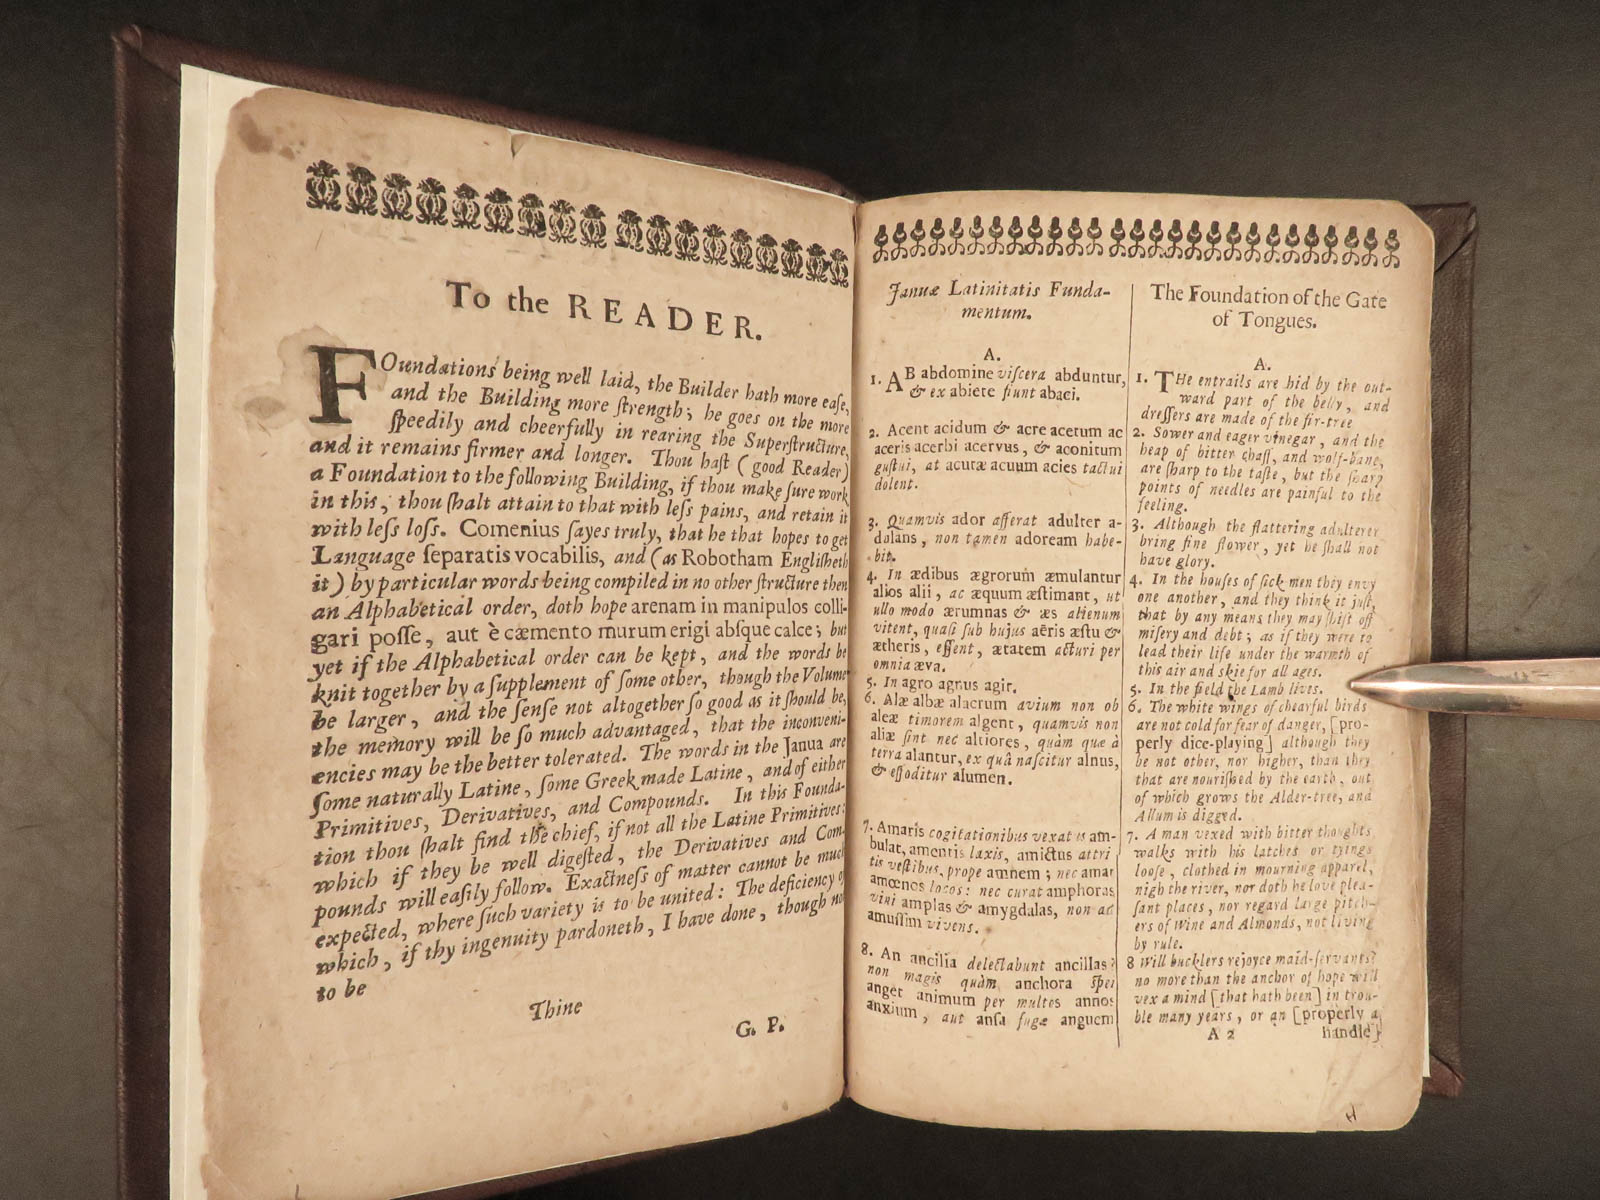 To the READER.
FOundations being well laid, the Builder hath more ease,
and the Building more ſtrength; he goes on the more
ſpeedily and cheerfully in rearing the Superſtructure,
and it remains firmer and longer. Thou haſt (good Reader)
a Foundation to the following Building, if thou make ſure work
in this, thou ſhalt attain to that with leſs pains, and retain it
with leſs loſs. Comenius ſayes truly, that he that hopes to get
Language ſeparatis vocabilis, and (as Robotham Engliſheth
it) by particular words being compiled in no other ſtructure then
an Alphabetical order, doth hope arenam in manipulos colli-
gari poſſe, aut è cæmento murum erigi abſque calce; but
yet if the Alphabetical order can be kept, and the words be
knit together by a ſupplement of ſome other, though the Volume
be larger, and the ſenſe not altogether ſo good as it ſhould be,
the memory will be ſo much advantaged, that the inconveni-
encies may be the better tolerated. The words in the Janua are
ſome naturally Latine, ſome Greek made Latine, and of either
Primitives, Derivatives, and Compounds. In this Founda-
tion thou ſhalt find the chief, if not all the Latine Primitives:
which if they be well digeſted, the Derivatives and Com-
pounds will eaſily follow. Exactneſs of matter cannot be much
expected, where ſuch variety is to be united: The deficiency of
which, if thy ingenuity pardoneth, I have done, though not
to be
Thine
G. P.
Januæ Latinitatis Funda-
mentum.
A.
1. AB abdomine viſcera abduntur,
& ex abiete fiunt abaci.
2. Acent acidum & acre acetum ac
aceris acerbi acervus, & aconitum
guſtui, at acutæ acuum acies tactui
dolent.
3. Quamvis ador afferat adulter a-
dolans, non tamen adoream habe-
bit.
4. In ædibus ægrorum æmulantur
alios alii, ac æquum æſtimant, ut
ullo modo ærumnas & æs alienum
vitent, quaſi ſub hujus aëris æſtu &
ætheris, eſſent, ætatem acturi per
omnia æva.
5. In agro agnus agit.
6. Alæ albæ alacrum avium non ob
aleæ timorem algent, quamvis non
aliæ ſint nec altiores, quàm quæ à
terra alantur, ex quâ naſcitur alnus,
& effoditur alumen.
7. Amaris cogitationibus vexatus am-
bulat, amentis laxis, amictus attri
tis veſtibus, prope amnem; nec amat
amœnos locos: nec curat amphoras
vini amplas & amygdalas, non ad
amuſſim vivens.
8. An ancilia delectabunt ancillas?
non magis quàm anchora ſpei
anget animum per multos annos
anxium, aut anſa fugæ anguem
The Foundation of the Gate
of Tongues.
A.
1. THe entrails are hid by the out-
ward part of the belly, and
dreſſers are made of the fir-tree
2. Sower and eager vinegar, and the
heap of bitter chaff, and wolf-bane,
are ſharp to the taſte, but the ſharp
points of needles are painful to the
feeling.
3. Although the flattering adulterer
bring fine flower, yet he ſhall not
have glory.
4. In the houſes of ſick men they envy
one another, and they think it juſt,
that by any means they may ſhift off
miſery and debt; as if they were to
lead their life under the warmth of
this air and skie for all ages.
5. In the field the Lamb lives.
6. The white wings of chearful birds
are not cold for fear of danger, [pro-
perly dice-playing] although they
be not other, nor higher, than they
that are nouriſhed by the earth, out
of which grows the Alder-tree, and
Allum is digged.
7. A man vexed with bitter thoughts
walks with his latches or tyings
looſe, clothed in mourning apparel,
nigh the river, nor doth he love plea-
ſant places, nor regard large pitch-
ers of Wine and Almonds, not living
by rule.
8 Will bucklers rejoyce maid-ſervants?
no more than the anchor of hope will
vex a mind [that hath been] in trou-
ble many years, or an [properly a
A 2 handle]